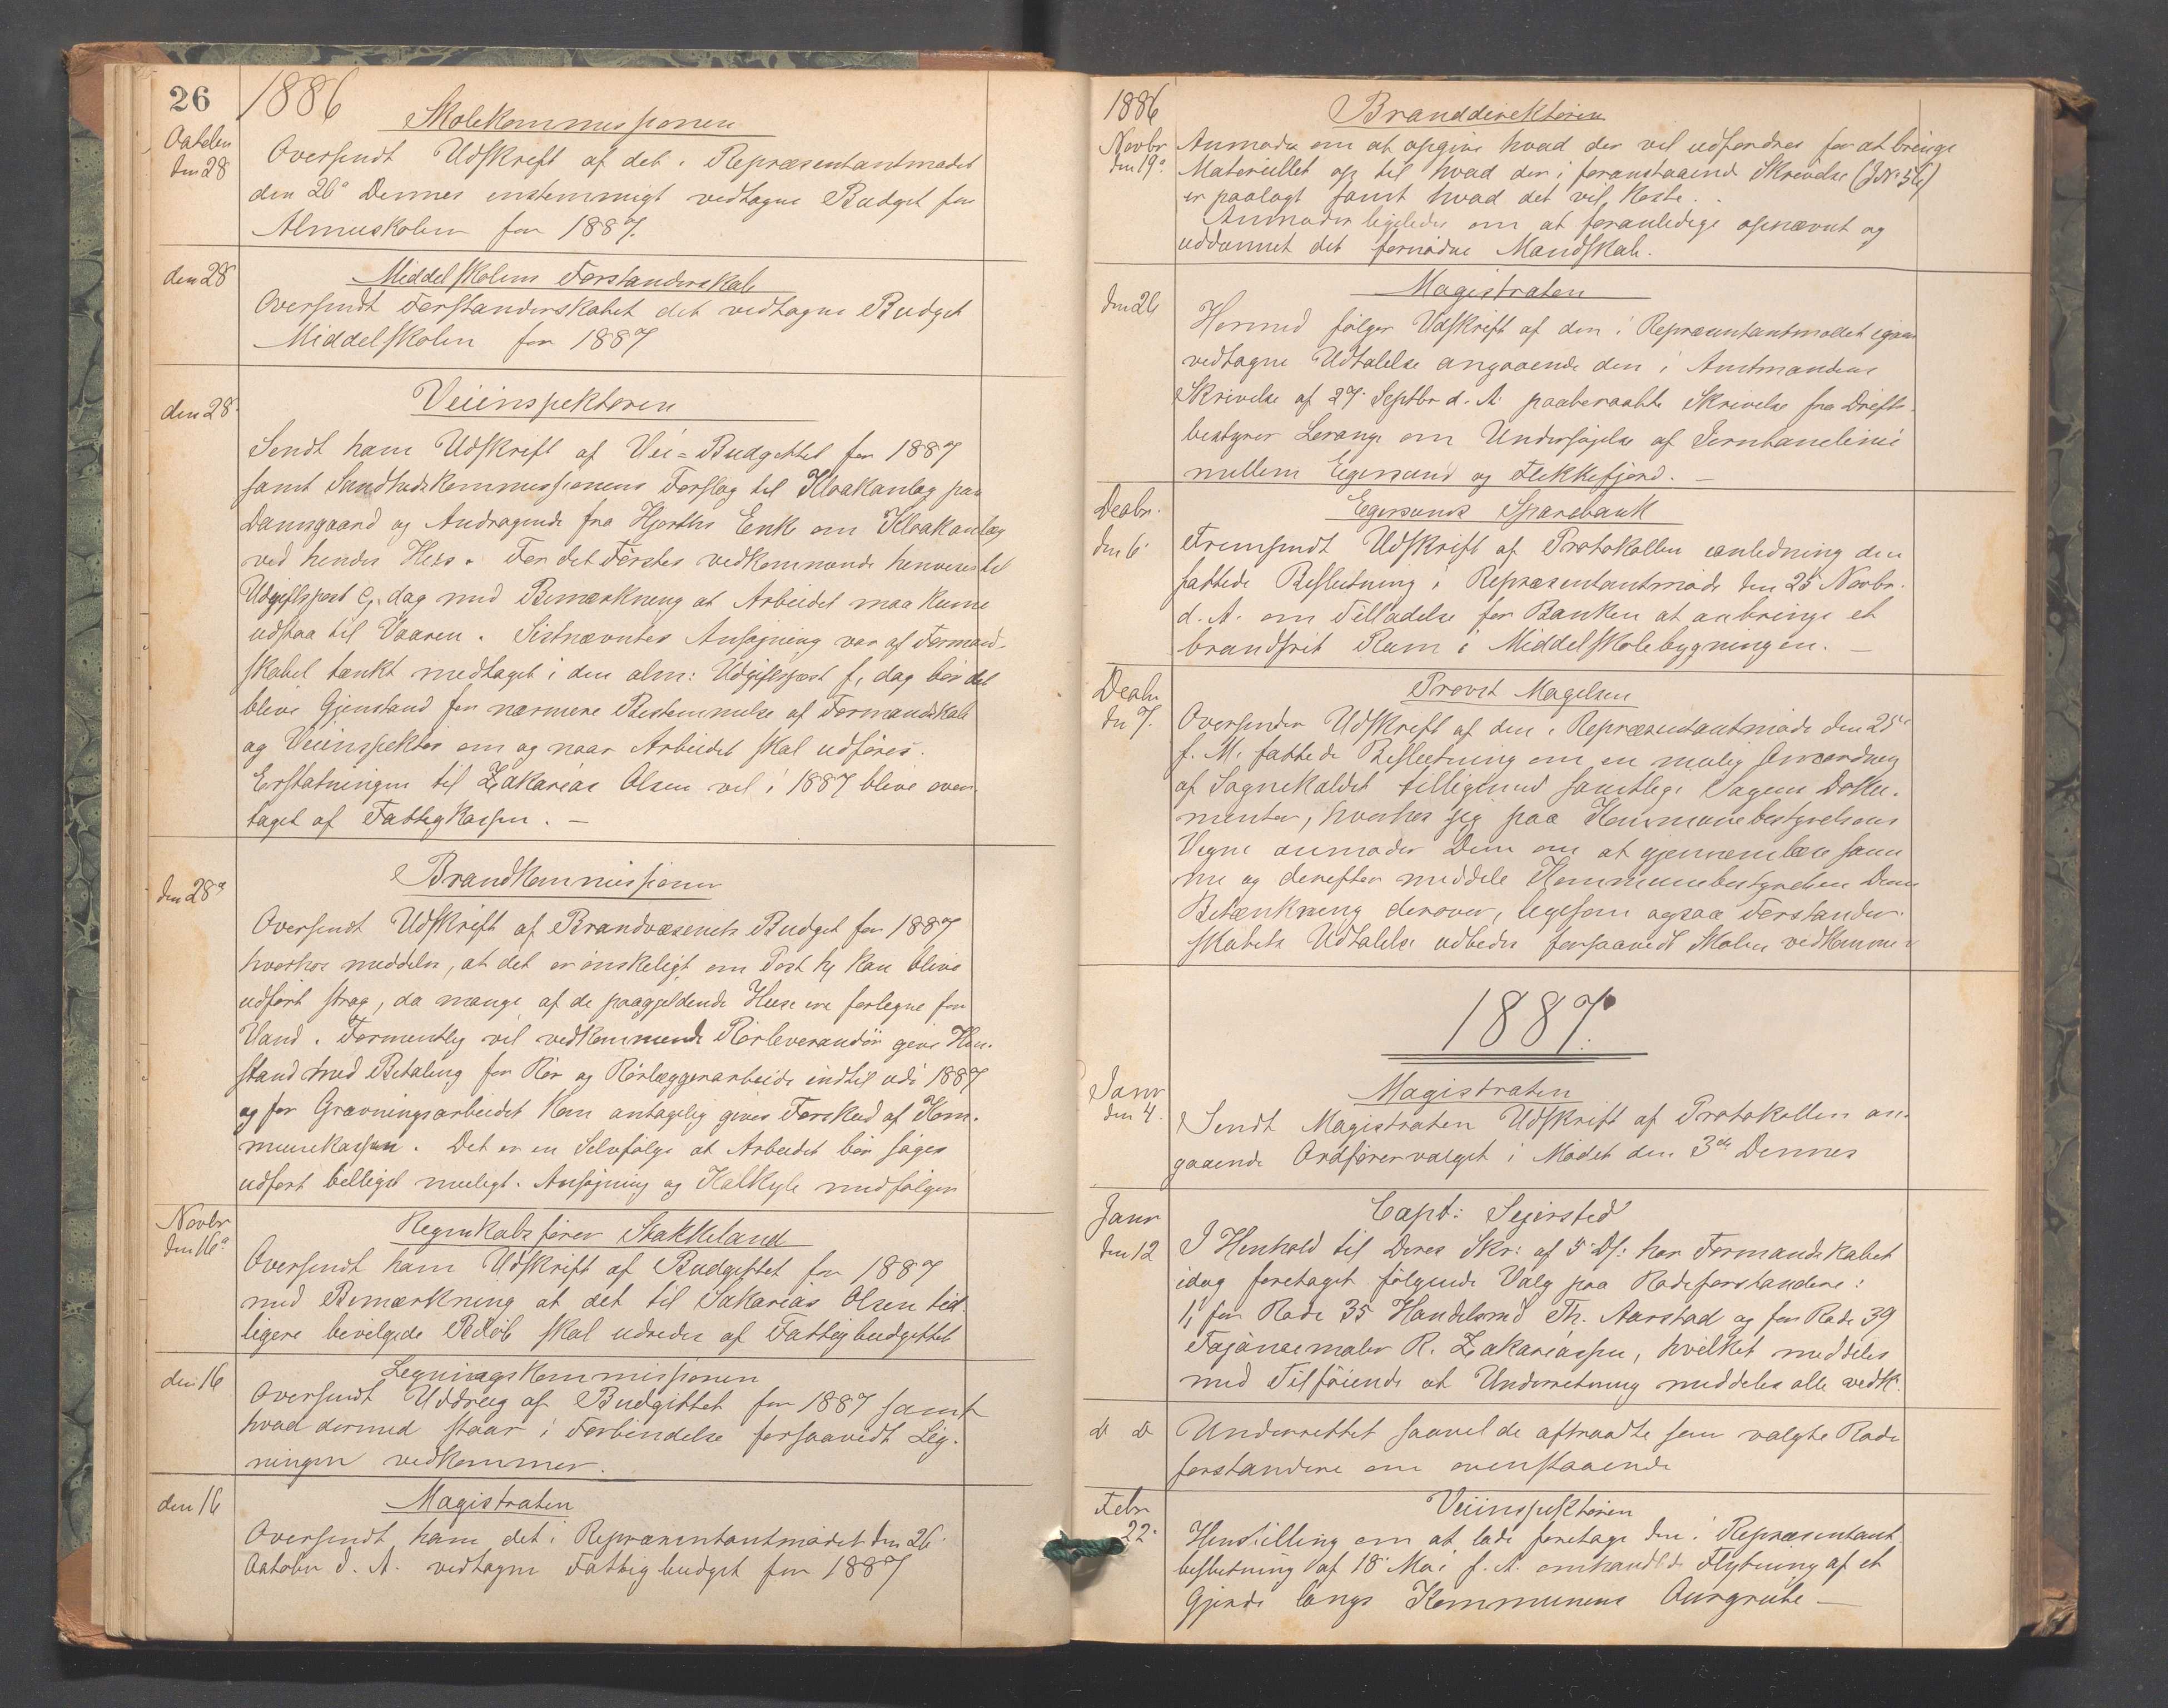 26
1886
Skolekommissionen
Octobr
den 28
Oversendt Udskrift af det i Repræsentantmødet
den 26de Dennes enstemmigt vedtagne Budget for
Almuskolen for 1887.
den 28
Middelskolens Forstanderskab
Oversendt Forstanderskabet det vedtagne Budget
Middelskolen for 1887
den 28
Veiinspektøren
Sendt ham Udskrift af Vei-Budgettet for 1887
samt Sundhedskommissionens Forslag til Kloakanlæg paa
Damsgaard og Andragende fra Hjorths Enke om Kloakanlæg
ved hendes Hus. For det Førstes vedkommende henvises til
Udgiftspost e, dog med Bemærkning at Arbeidet maa kunne
udstaa til Vaaren. Sistnævntes Ansøgning var af Formand-
skabet tænkt medtaget i den alm: Udgiftspost f, dog bør det
blive Gjenstand for nærmere Bestemmelse af Formandskab
og Veiinspektør om og naar Arbeidet skal udføres.
Erstatningen til Zakarias Olsen vil i 1887 blive over-
taget af Fattigkassen. —
den 28de
Brandkommissionen
Oversendt Udskrift af Brandvæsenets Budget for 1887
hvorhos meddeles, at det er ønskeligt om Post h, kan blive
udført strax, da mange af de paagjeldende Huse ere forlegne for
Vand. Formentlig vil vedkommende Rørleverandør give Hen-
stand med Betaling for Rør og Rørlæggerarbeide indtil udi 1887
og for Gravningsarbeidet kan antagelig gives Forskud af Kom-
munekassen. Det er en Selvfølge at Arbeidet bør søges
udført billigst muligt. Ansøgning og Kalkyle medfølger
Novbr
den 16de
Regnskabsfører Stakkeland
Oversendt ham Udskrift af Budgettet for 1887
med Bemærkning at det til Sakarias Olsen tid-
ligere bevilgede Beløb skal udredes af Fattigbudgettet
den 16
Legningskommissionen
Oversendt Uddrag af Budgettet for 1887 samt
hvad dermed staar i Forbindelse forsaavidt Lig-
ningen vedkommer.
den 16
Magistraten
Oversendt ham det i Repræsentantmødet den 26
October d. A. vedtagne Fattigbudget for 1887
1886
Branddirektøren
Novbr
den 19de
Anmoder om at opgive hvad der vil udfordres for at bringe
Materiellet op til hvad der i foranstaaende Skrivelse (J.No 56)
er paalagt samt hvad det vil koste.
Anmoder ligeledes om at foranledige opnævnt og
uddannet det fornødne Mandskab.
den 26
Magistraten
Hermed følger Udskrift af den i Repræsentantmødet igaar
vedtagne Udtalelse angaaende den i Amtmandens
Skrivelse af 27 Septbr d. A. paaberaabte Skrivelse fra Drifts-
bestyrer Lerange om Undersøgelse af Jernbanelinie
mellem Egersund og Flekkefjord. —
Decbr.
den 6
Egersunds Sparebank
Fremsendt Udskrift af Protokollen anledning den
fattede Beslutning i Repræsentantmøde den 25 Novbr.
d. A. om Tilladelse for Banken at anbringe et
brandfrit Rum i Middelskolebygningen. —
Decbr
den 7.
Provst Magelsen
Oversender Udskrift af den i Repræsentantmøde den 25de
f. M. fattede Beslutning om en mulig Omordning
af Sognekaldet tilligemed samtlige Sagens Doku-
menter, hvorhos jeg paa Kommunebestyrelsens
Vegne anmoder Dem om at gjennemlæse sam
me og derefter meddele Kommunebestyrelsen Deres
Betænkning derover, ligesom ogsaa Forstander-
skabets Udtalelse udbedes forsaavidt Skolen vedkommer
1887.
Janr
den 4.
Magistraten
Sendt Magistraten Udskrift af Protokollen an-
gaaende Ordførervalget i Mødet den 3de Dennes
Janr
den 12
Capt: Sejersted
I Henhold til Deres Skr: af 5 Ds: har Formandskabet
idag foretaget følgende Valg paa Rodeforstandere:
1, for Rode 35 Handelsmd Th. Aarstad og for Rode 39
Fajancemaler R. Zakariassen, hvilket meddeles
med Tilføiende at Underretning meddeles alle vedk.
D D
Underrettet saavel de aftraadte som valgte Rode
forstandere om ovenstaaende
Febr
22
Veiinspektøren
Henstilling om at lade foretage den i Repræsentant
beslutning af 18 Mai f. A. omhandlede Flytning af et
Gjerde langs Kommunens Aurgrube —